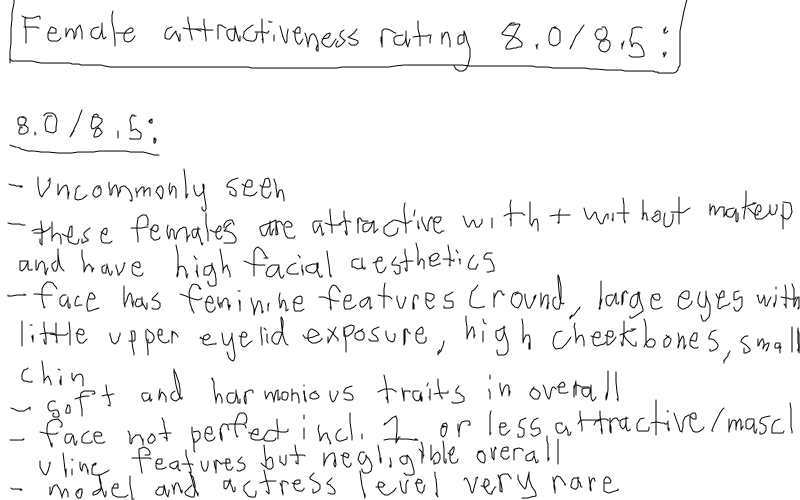 Female attractiveness rating 8.0/8.5:
8.0/8.5:
- Uncommonly seen
- these females are attractive with + without makeup
and have high facial aesthetics
- face has feninine features (round, large eyes with
little upper eyelid exposure, high cheekbones, small
chin
- soft and harmonious traits in overall
- face not perfect incl. 1 or less attractive/mascl
uline features but negligible overall
- model and actress level very rare